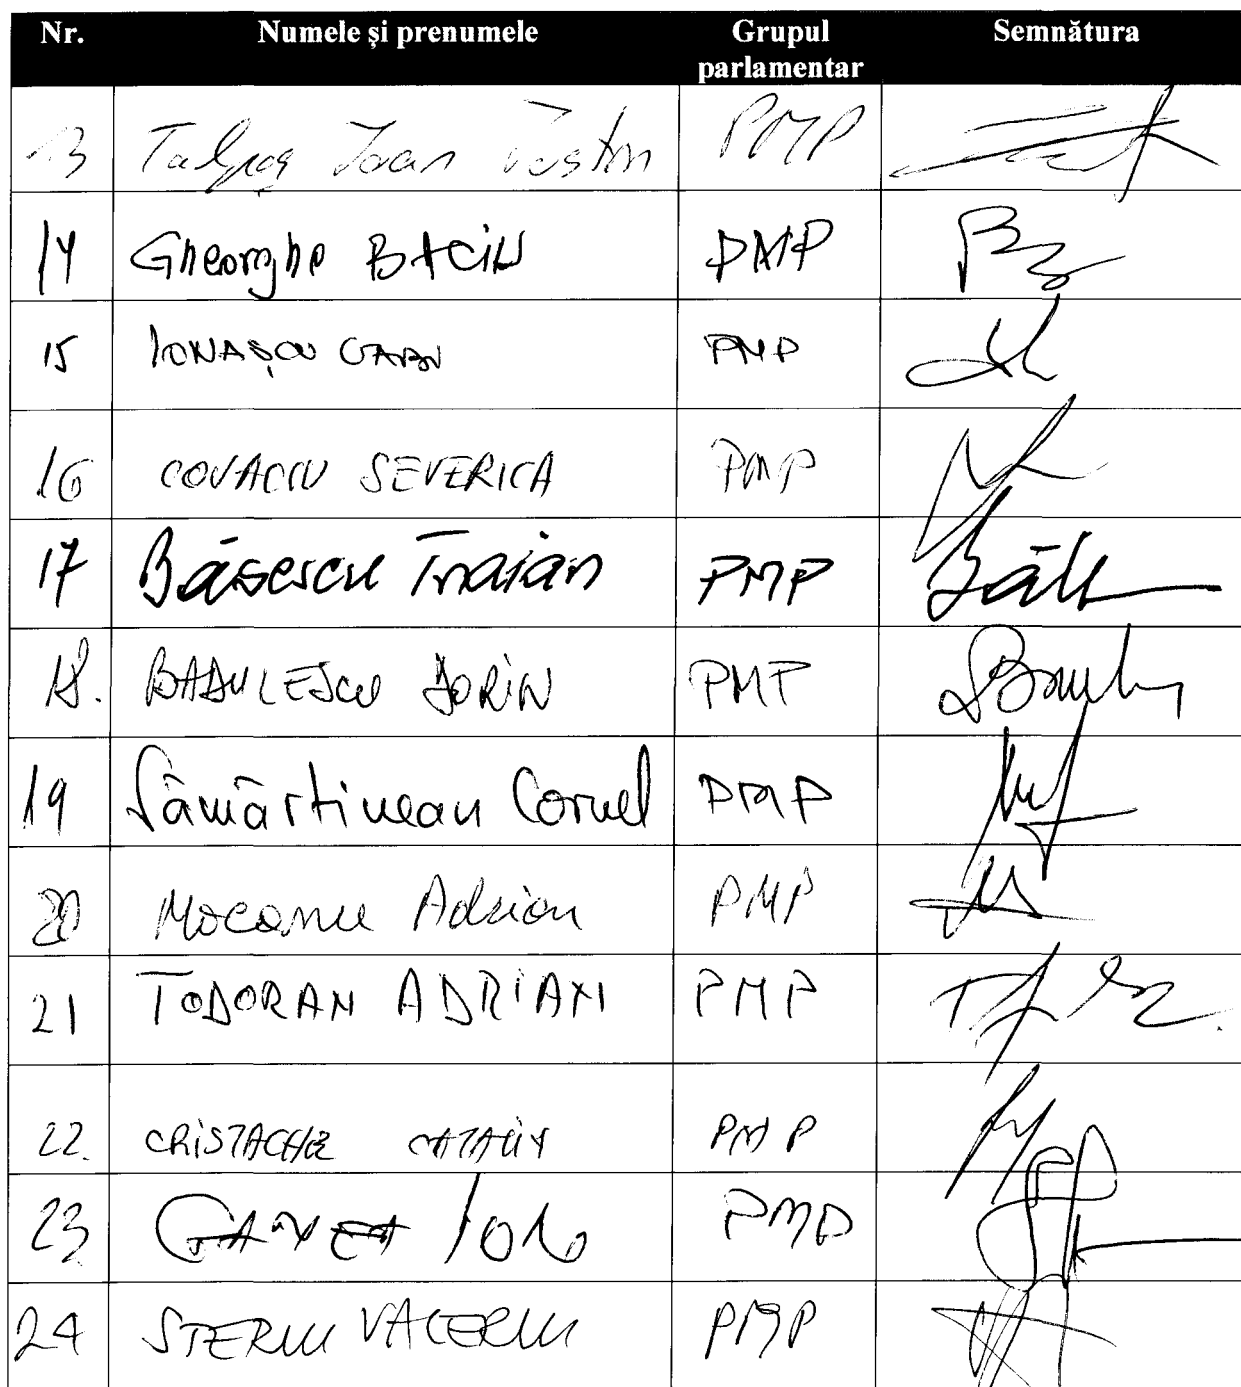 Nr. Numele și prenumele Grupul parlamentar Semnătura
13 Talpoș Ioan Iustin PMP
14 Gheorghe BACIU PMP
15 IONAȘCU GABI PMP
16 COVACIU SEVERICA PMP
17 Băsescu Traian PMP
18. BĂDULESCU DORIN PMP
19 Sămărtinean Cornel PMP
20 Mocanu Adrian PMP
21 TODORAN ADRIAN PMP
22. CRISTACHE CATALIN PMP
23 PMP
24 STERIU VALERIU PMP